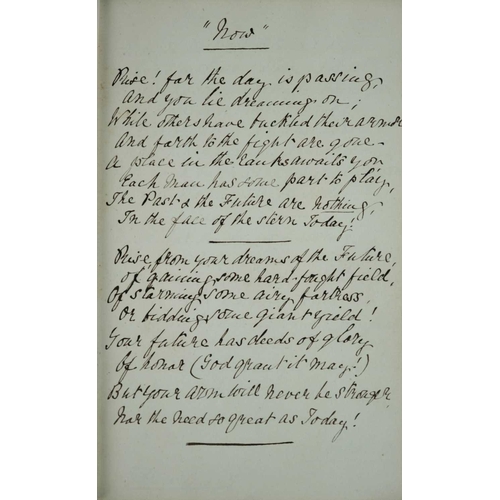 "Now"
Rise! for the day is passing,
And you lie dreaming on;
While others have buckled their armor
And forth to the fight are gone -
A place in the ranks awaits you
Each man has some part to play,
The Past & the Future are nothing,
In the face of the stern Today!
Rise, from your dreams of the Future,
Of gaining some hard-fought field,
Of storming some airy fortress,
Or bidding some giant yield!
Your future has deeds of glory
Of honor (God grant it may!)
But your arm will never be stronger
Nor the need so great as Today!